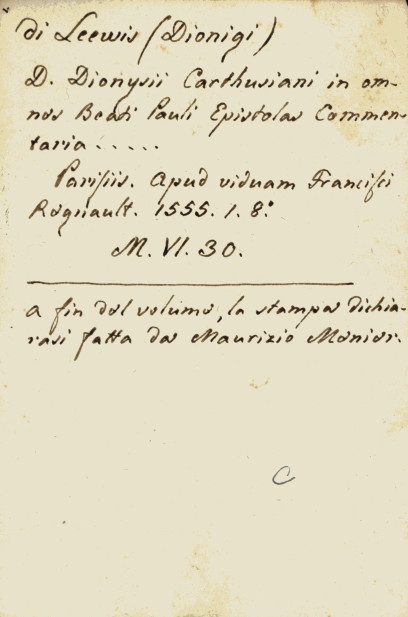 di Leewis (Dionigi)
D. Dionysii Carthusiani in om-
nes Beati Pauli Epistolas Commen-
taria.....
Parisiis. Apud viduam Francisci
Regnault. 1555. 1. 8.°
M. VI. 30.
a fin del volume, la stampa dichia-
rasi fatta da Maurizio Menier.
C